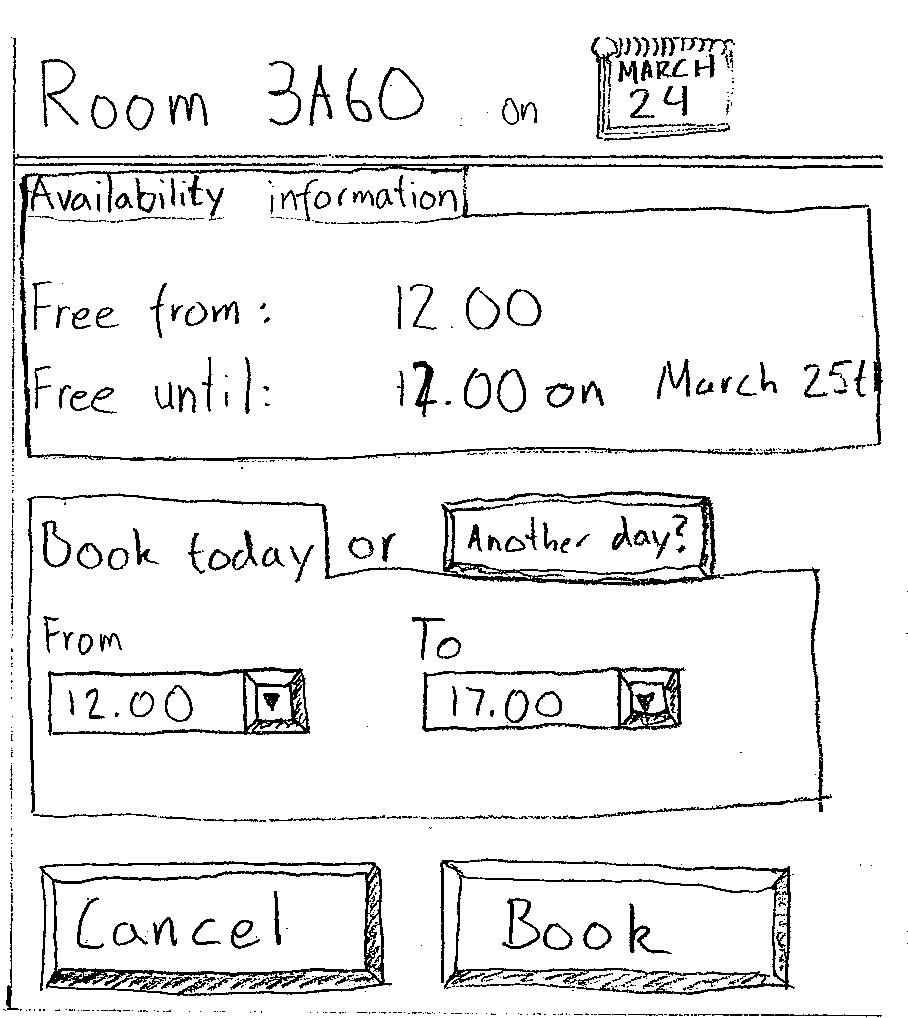 Room 3A60 on MARCH 24
Availability information
Free from: 12.00
Free until: 12.00 on March 25th
Book today or Another day?
From To
12.00 17.00
Cancel Book